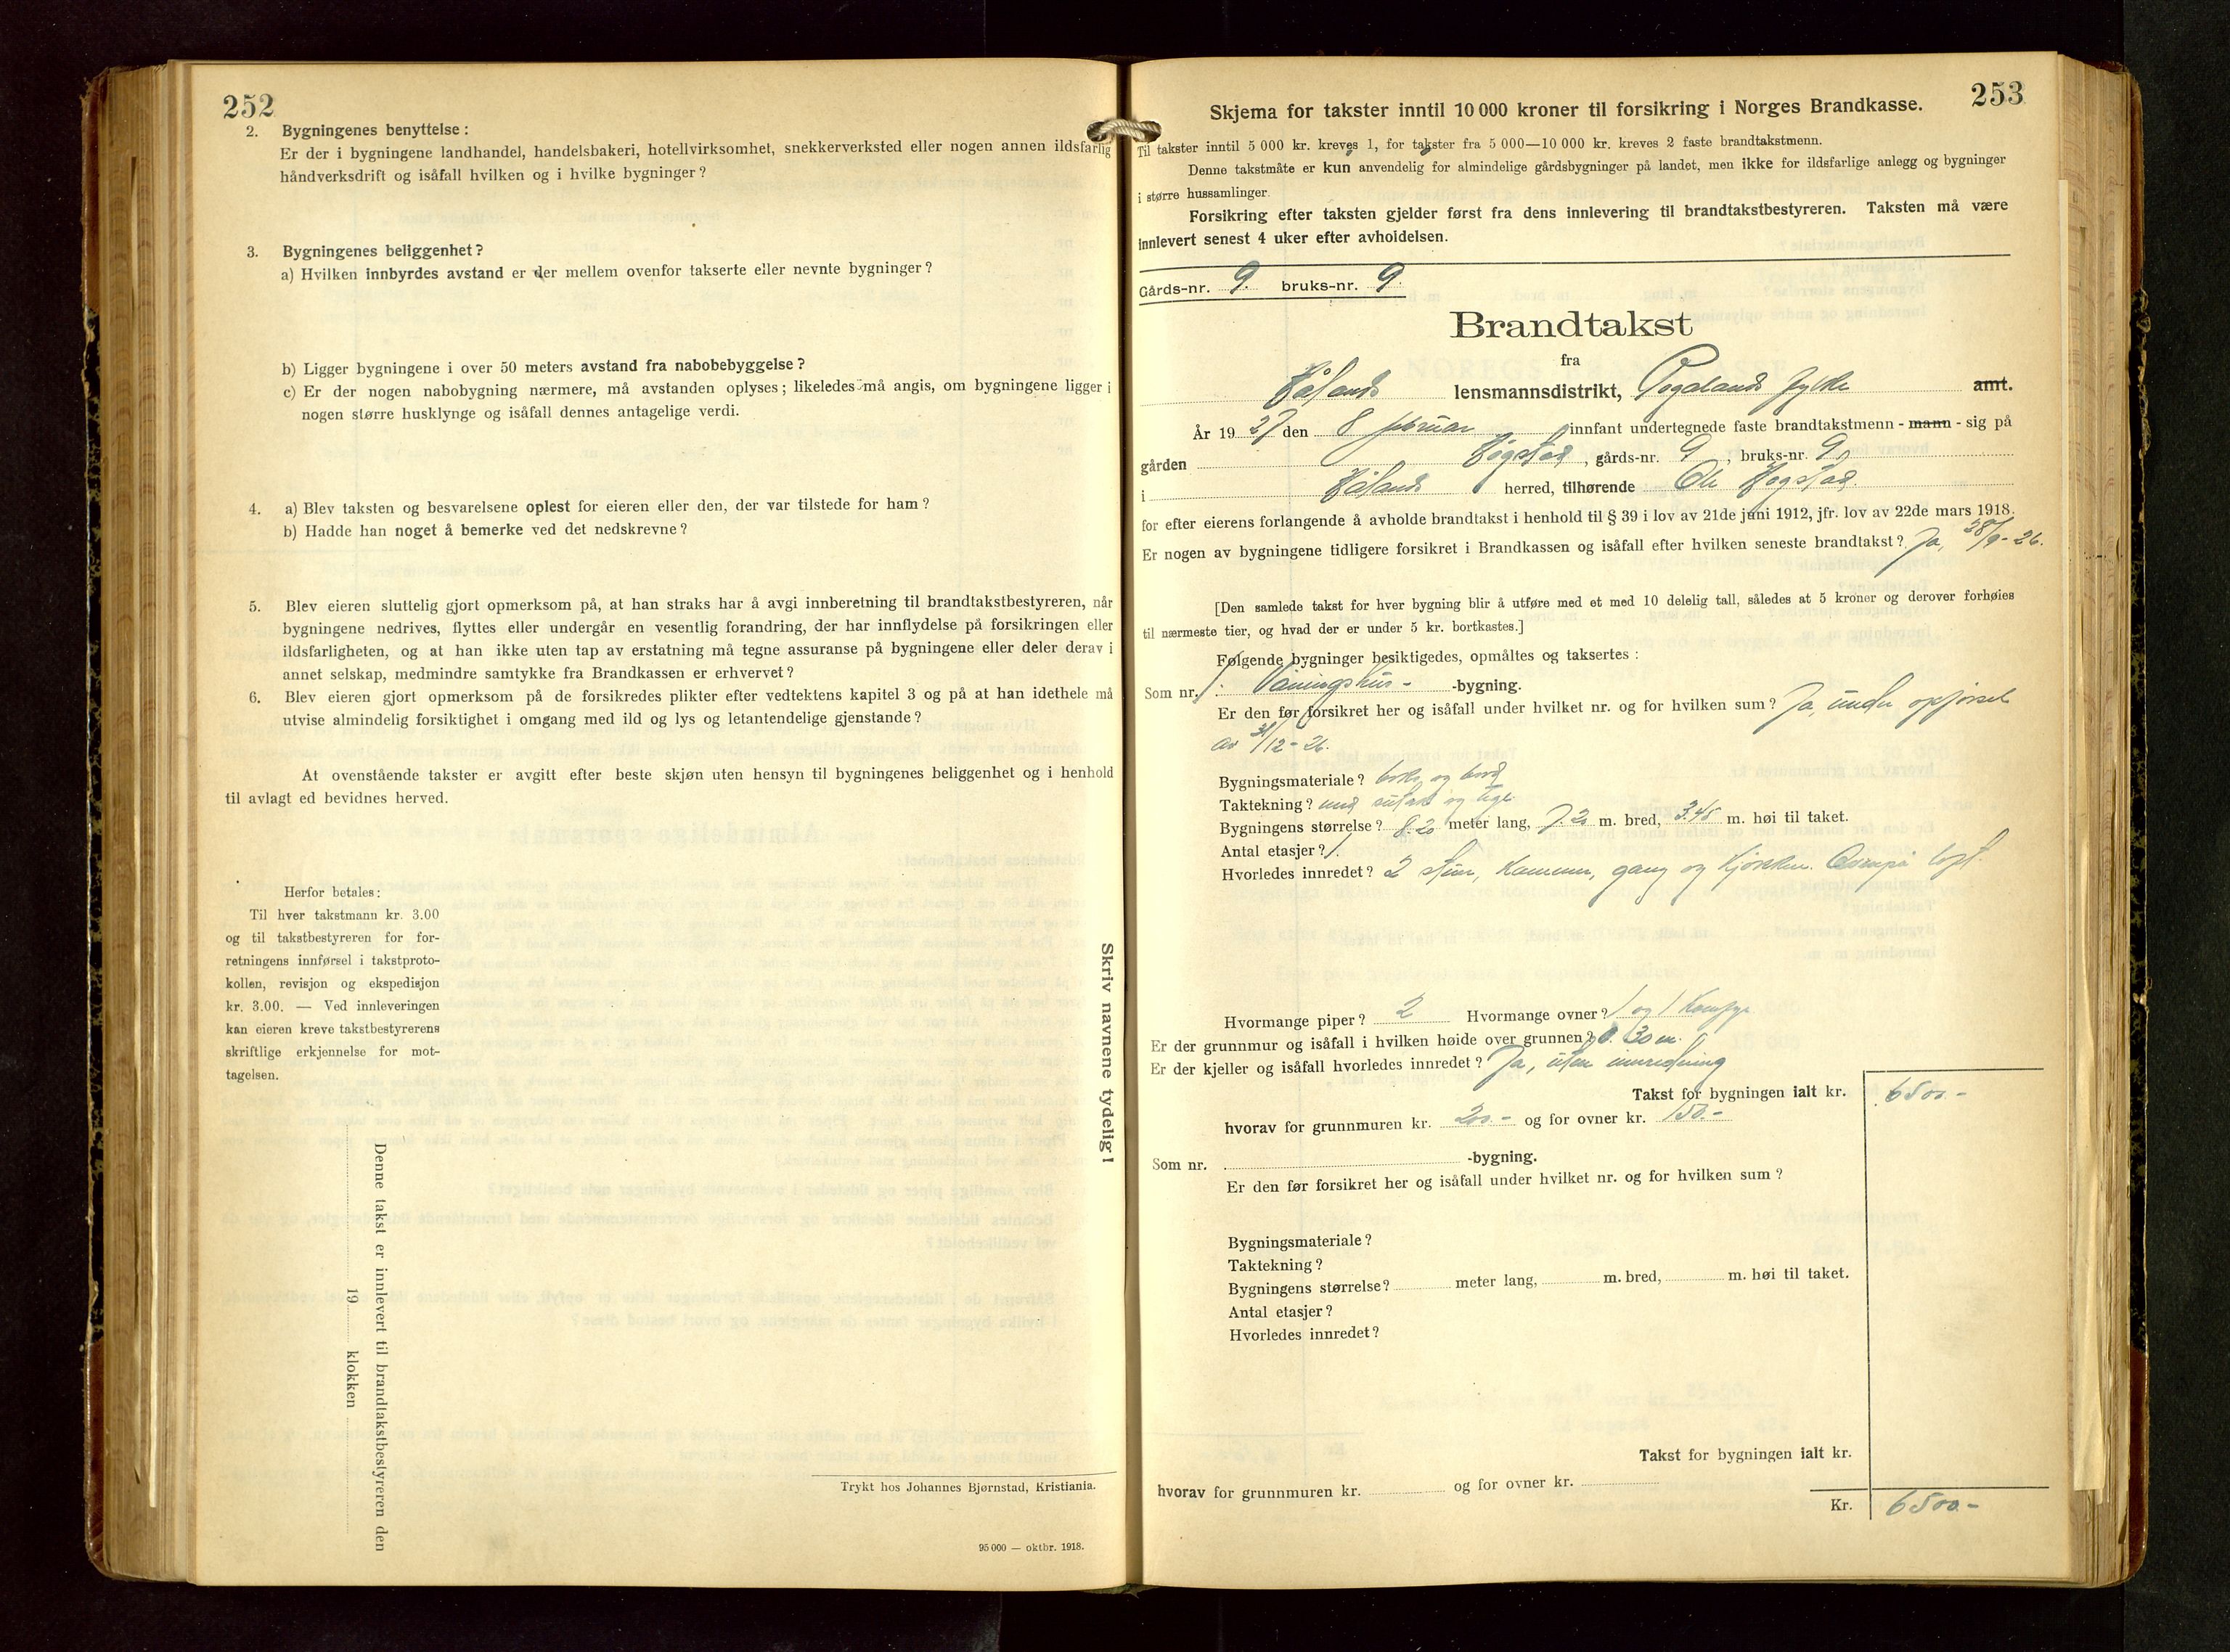 252
2. Bygningenes benyttelse:
Er der i bygningene landhandel, handelsbakeri, hotellvirksomhet, snekkerverksted eller nogen annen ildsfarlig
håndverksdrift og isåfall hvilken og i hvilke bygninger?
3. Bygningenes beliggenhet?
a) Hvilken innbyrdes avstand er der mellem ovenfor takserte eller nevnte bygninger?
b) Ligger bygningene i over 50 meters avstand fra nabobebyggelse?
c) Er der nogen nabobygning nærmere, må avstanden oplyses; likeledes må angis, om bygningene ligger i
nogen større husklynge og isåfall dennes antagelige verdi.
4. a) Blev taksten og besvarelsene oplest for eieren eller den, der var tilstede for ham?
b) Hadde han noget å bemerke ved det nedskrevne?
5. Blev eieren sluttelig gjort opmerksom på, at han straks har å avgi innberetning til brandtakstbestyreren, når
bygningene nedrives, flyttes eller undergår en vesentlig forandring, der har innflydelse på forsikringen eller
ildsfarligheten, og at han ikke uten tap av erstatning må tegne assuranse på bygningene eller deler derav i
annet selskap, medmindre samtykke fra Brandkassen er erhvervet?
6. Blev eieren gjort opmerksom på de forsikredes plikter efter vedtektens kapitel 3 og på at han idethele må
utvise almindelig forsiktighet i omgang med ild og lys og letantendelige gjenstande?
At ovenstående takster er avgitt efter beste skjøn uten hensyn til bygningenes beliggenhet og i henhold
til avlagt ed bevidnes herved.
Herfor betales:
Til hver takstmann kr. 3.00
og til takstbestyreren for for-
retningens innførsel i takstproto-
kollen, revisjon og ekspedisjon
kr. 3.00. — Ved innleveringen
kan eieren kreve takstbestyrerens
skriftlige erkjennelse for mot-
tagelsen.
Skriv navnene tydelig!
Denne takst er innlevert til brandtakstbestyreren den
19 klokken
Trykt hos Johannes Bjørnstad, Kristiania.
95 000 — oktbr. 1918.
253
Skjema for takster inntil 10 000 kroner til forsikring i Norges Brandkasse.
Til takster inntil 5 000 kr. kreves 1, for takster fra 5 000—10 000 kr. kreves 2 faste brandtakstmenn.
Denne takstmåte er kun anvendelig for almindelige gårdsbygninger på landet, men ikke for ildsfarlige anlegg og bygninger
i større hussamlinger.
Forsikring efter taksten gjelder først fra dens innlevering til brandtakstbestyreren. Taksten må være
innlevert senest 4 uker efter avholdelsen.
Gårds-nr. 9. bruks-nr. 9.
Brandtakst
fra
Håland lensmannsdistrikt, Rogalands fylke amt.
År 1927 den 8 februar innfant undertegnede faste brandtakstmenn - mann - sig på
gården Høgstad, gårds-nr. 9, bruks-nr. 9,
i Håland herred, tilhørende Ole Høgstad.
for efter eierens forlangende å avholde brandtakst i henhold til § 39 i lov av 21de juni 1912, jfr. lov av 22de mars 1918.
Er nogen av bygningene tidligere forsikret i Brandkassen og isåfall efter hvilken seneste brandtakst? Ja, 28/9-26.
[Den samlede takst for hver bygning blir å utføre med et med 10 delelig tall, således at 5 kroner og derover forhøies
til nærmeste tier, og hvad der er under 5 kr. bortkastes.]
Følgende bygninger besiktigedes, opmåltes og taksertes:
Som nr. 1. Våningshus- -bygning.
Er den før forsikret her og isåfall under hvilket nr. og for hvilken sum? Ja, under opførsel
av 31/12-26.
Bygningsmateriale? og bord
Taktekning? med og tegl
Bygningens størrelse? 8.20 meter lang, 7.20 m. bred, 3.45 m. høi til taket.
Antal etasjer? 1.
Hvorledes innredet? 2 stuer, kammer, gang og kjøkken. Ovenpå loft.
Hvormange piper? 2 Hvormange ovner? 1 og 1 Komfyr
Er der grunnmur og isåfall i hvilken høide over grunnen? 0.30 m.
Er der kjeller og isåfall hvorledes innredet? Ja, uten innredning
Takst for bygningen ialt kr. 6500.-
hvorav for grunnmuren kr. 200.- og for ovner kr. 150.-
Som nr. -bygning.
Er den før forsikret her og isåfall under hvilket nr. og for hvilken sum?
Bygningsmateriale?
Taktekning?
Bygningens størrelse? meter lang, m. bred, m. høi til taket.
Antal etasjer?
Hvorledes innredet?
Takst for bygningen ialt kr.
hvorav for grunnmuren kr. og for ovner kr.
Kr. 6500.-